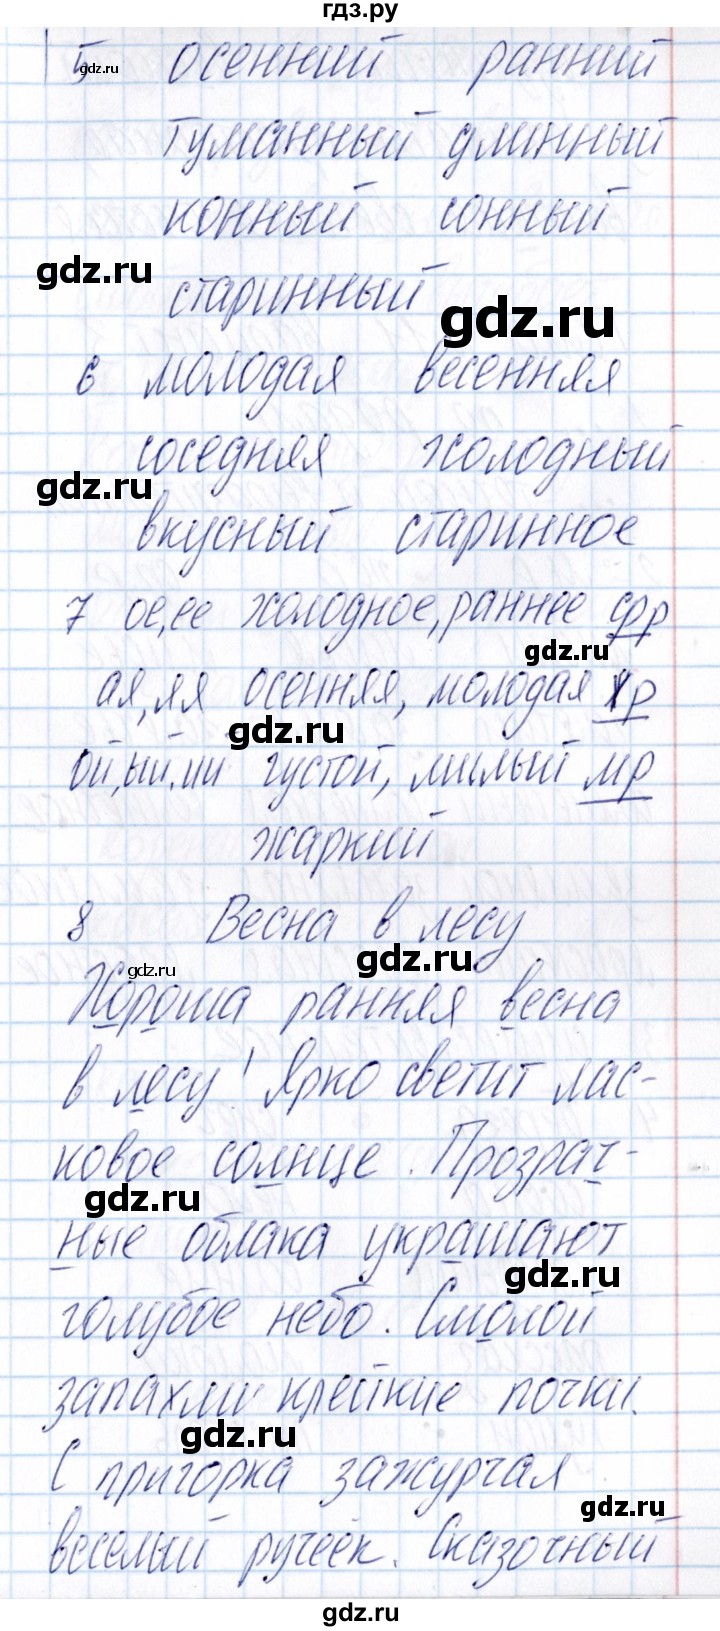 гдз.ру
5 осенний ранний
gdz.ru
туманный длинный
конный сонный
gdz.ru
старинный
gdz.ru
6 молодая весенняя
соседняя холодный
gdz.ru
вкусный старинное
7 ое,ее холодное, раннее ср р
gdz.ru
ая,яя осенняя, молодая ж р
gdz.ru
ой,ый,ий густой, милый м р
жаркий
8 Весна в лесу
gdz.ru
gdz.ru
Хороша ранняя весна
в лесу! Ярко светит лас-
ковое солнце. Прозрач-
gdz.ru
ные облака украшают
gdz.ru
голубое небо. Смолой
запахли клейкие почки.
gdz.ru
С пригорка зажурчал
gdz.ru
веселый ручеек. Сказочный
gdz.ru